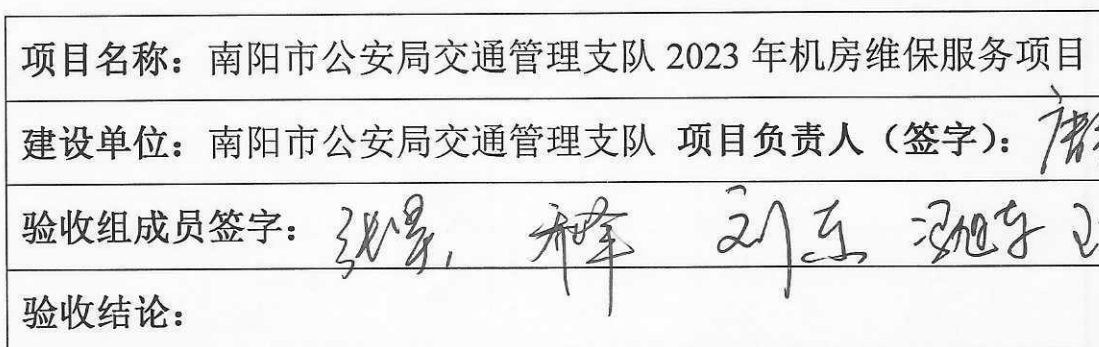 项目名称：南阳市公安局交通管理支队 2023 年机房维保服务项目
建设单位：南阳市公安局交通管理支队 项目负责人（签字）：
验收组成员签字： 刘东
验收结论：